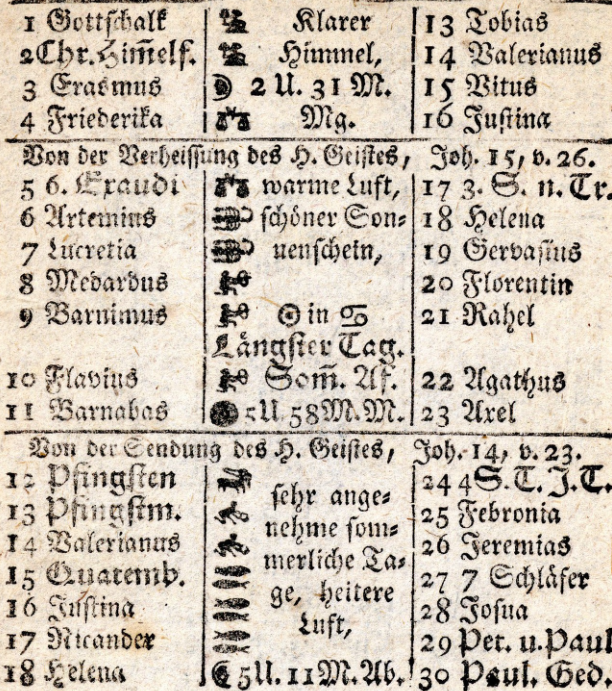 1 Gottschalk Klarer 13 Tobias
2 Chr. Him̄elf. Himmel, 14 Valerianus
3 Erasmus ☽ 2 U. 31 M. 15 Vitus
4 Friederika Mg. 16 Justina
Von der Verheissung des H. Geistes, Joh. 15, v. 26.
5 6. Exaudi warme Luft, 17 3. S. n. Tr.
6 Artemius schöner Son⸗ 18 Helena
7 Lucretia nenschein, 19 Gervasius
8 Medardus 20 Florentin
9 Barnimus ☉ in ♋ 21 Rahel
Längster Tag.
10 Flavius Som̄. Af. 22 Agathus
11 Barnabas 5 U. 58 M. M. 23 Axel
Von der Sendung des H. Geistes, Joh. 14, v. 23.
12 Pfingsten sehr ange⸗ 24 4 S. T. J. T.
13 Pfingstm. nehme som⸗ 25 Febronia
14 Valerianus merliche Ta⸗ 26 Jeremias
15 Quatemb. ge, heitere 27 7 Schläfer
16 Justina Luft, 28 Josua
17 Nicander 29 Pet. u. Paul
18 Helena ☾ 5 U. 11 M. Ab. 30 Paul. Ged.